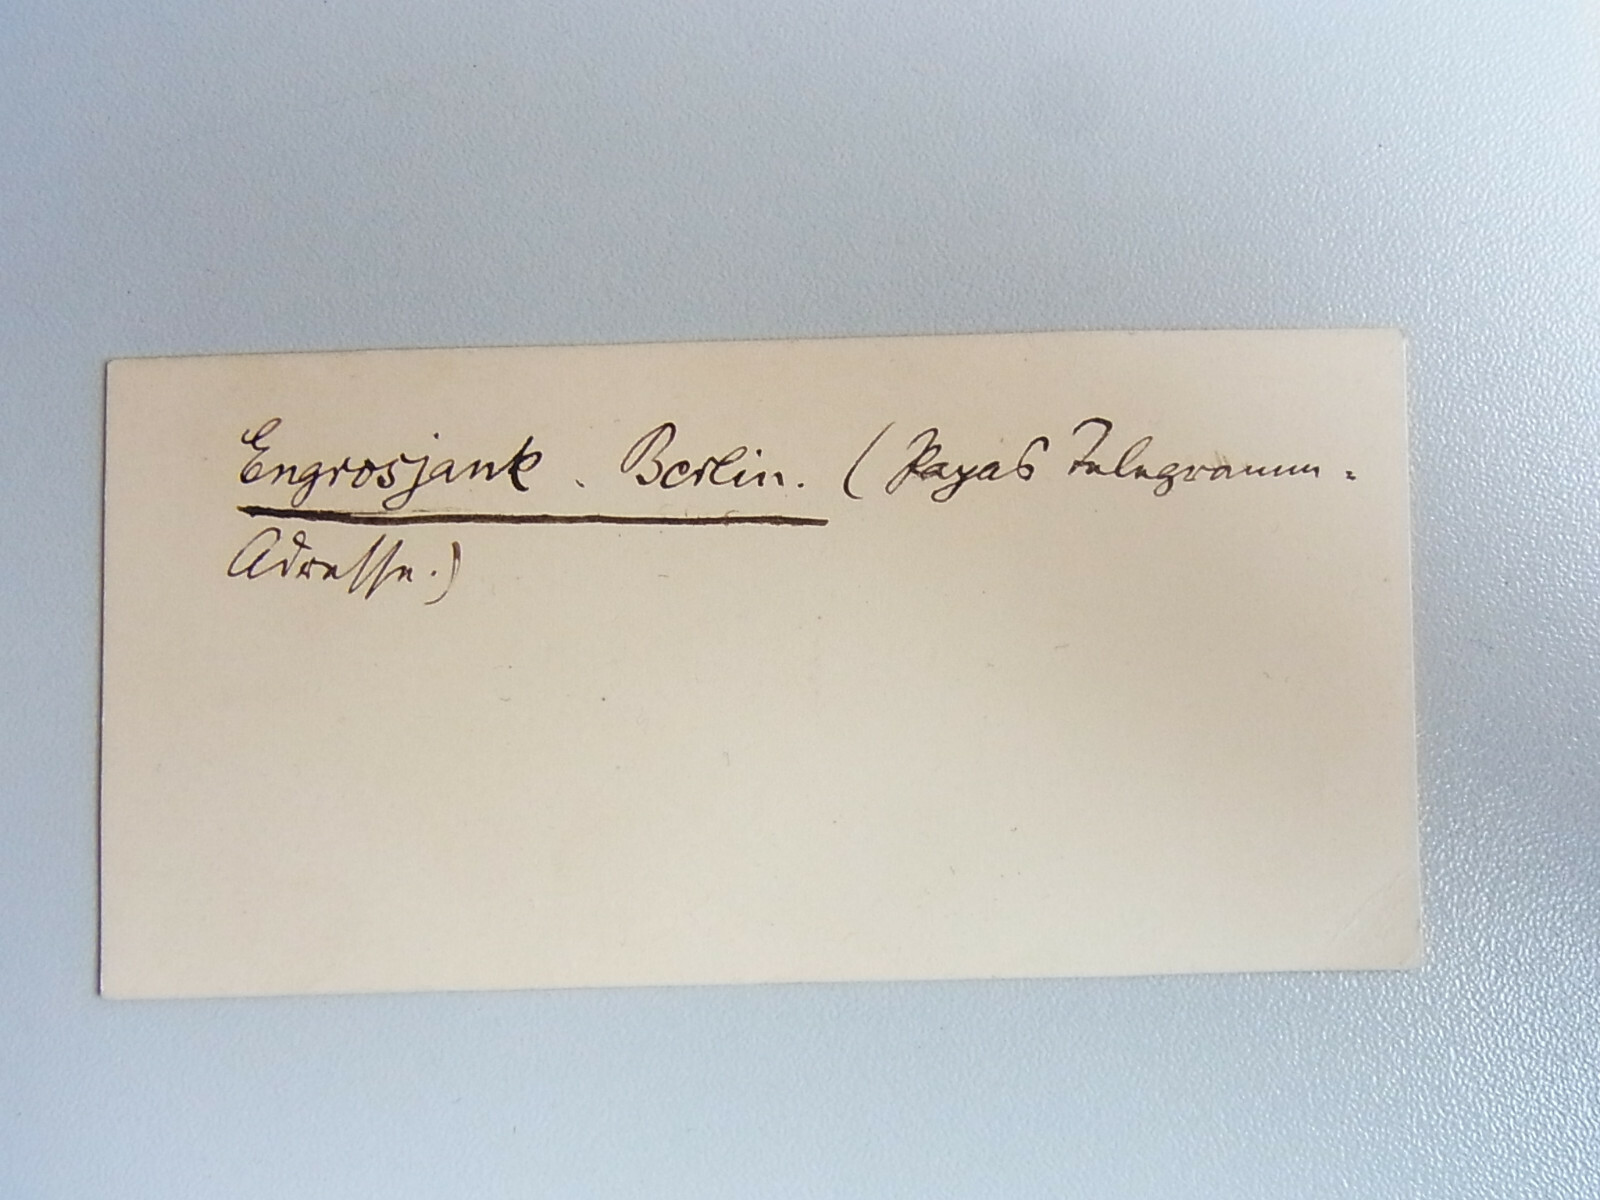 Engrosjank. Berlin. (Papas Telegramm=
Adresse.)